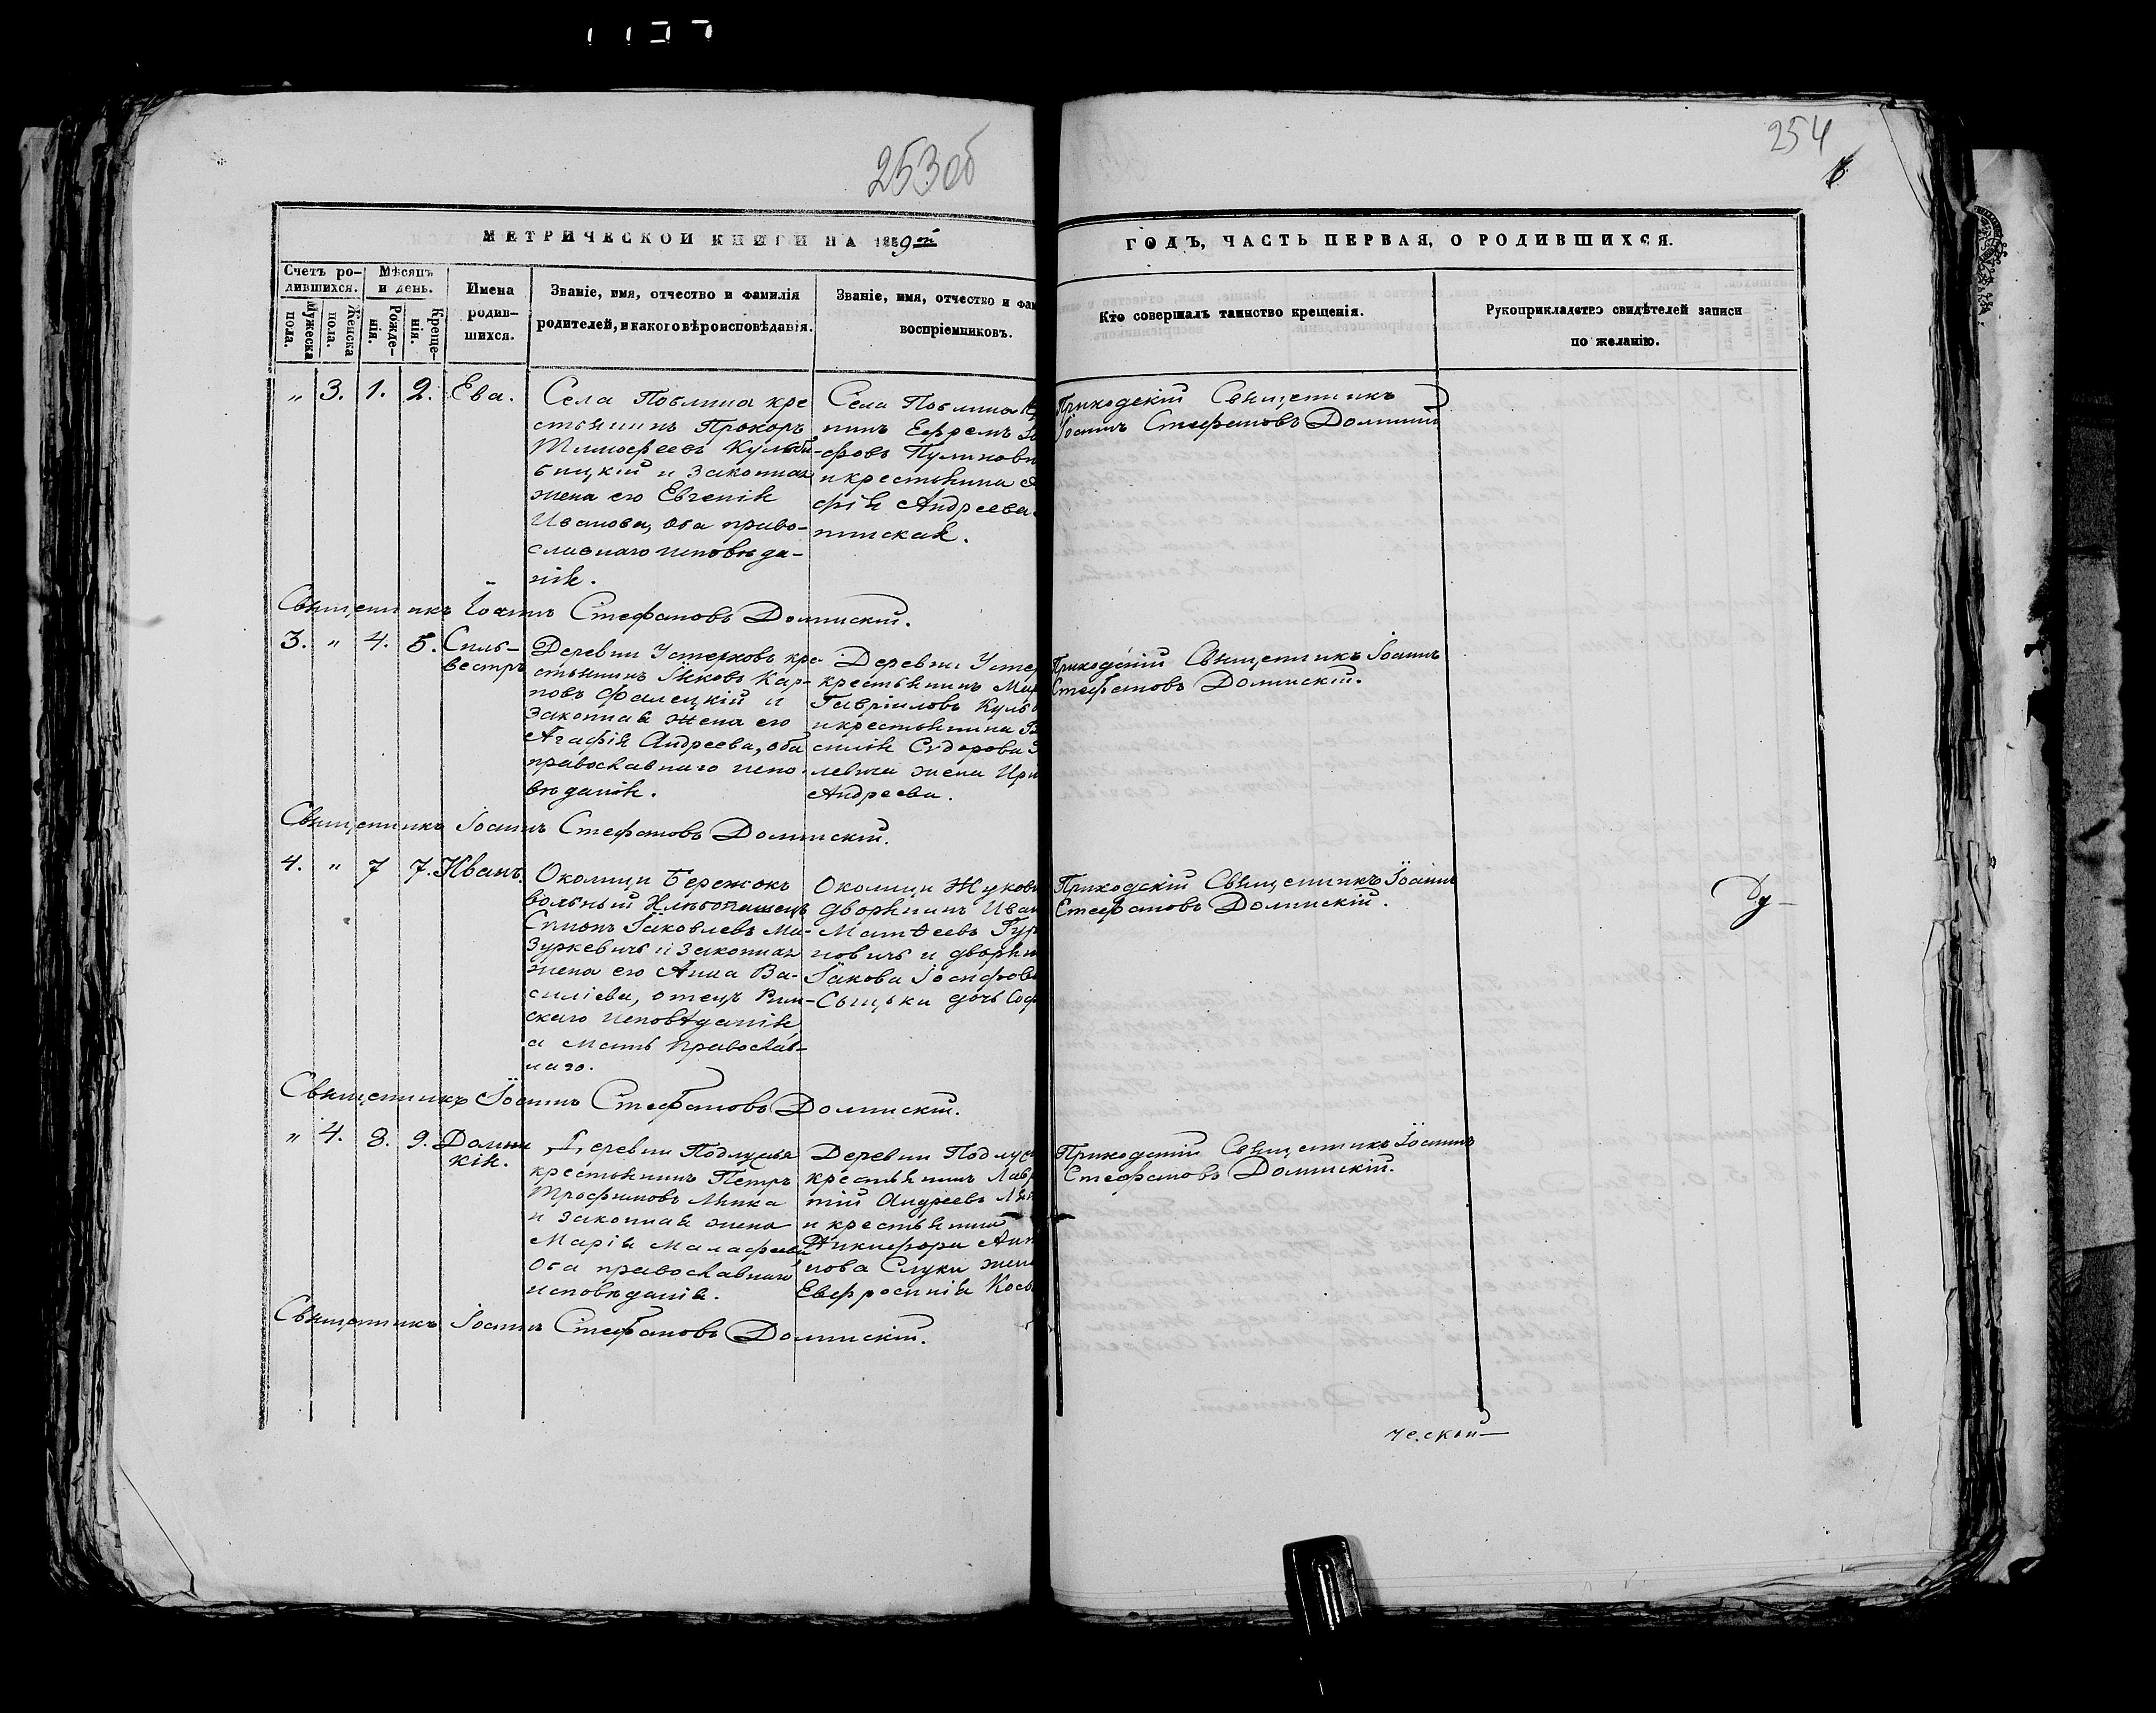 253 об
254
МЕТРИЧЕСКОЙ КНИГИ НА 1859й
ГОДЪ, ЧАСТЬ ПЕРВАЯ, О РОДИВШИХСЯ.
Счетъ ро-
дившихся.
Мѣсяцъ
и день.
Мужеска
пола.
Женска
пола.
Рожде-
нія.
Креще-
нія.
Имена
родив-
шихся.
Званіе, имя, отчество и фамилія
родителей, и какого вѣроисповѣданія.
Званіе, имя, отчество и фам
воспріемниковъ.
Кто совершалъ таинство крещенія.
Рукоприкладство свидѣтелей записи
по желанію.
„ 3. 1. 2. Ева.
Села кре
стьянинъ Прохоръ
Тимофеевъ
бицкій и законная
жена его Евгенія
Иванова, оба право-
славнаго исповѣда-
нія.
Села
нинъ Ефремъ
и крестьянина
фія Андреева
Приходскій Священникъ
Іоаннъ Стефановъ Долинскій
Священникъ Іоаннъ Стефановъ Долинскій.
3. „ 4. 5. Силь-
вестръ
Деревни Устерховъ кре-
стьянинъ Іяковъ Кар-
повъ Фалецкій и
законная жена его
Агафія Андреева, оба
православнаго испо-
вѣданія.
Деревни Устер
крестьянинъ
Гавріиловъ
и крестьянина
Сидорова
жена
Андреева.
Приходскій Священникъ Іоаннъ
Стефановъ Долинскій.
Священникъ Іоаннъ Стефановъ Долинскій.
4. „ 7 7. Иванъ.
Околицы Бережокъ
вольный Хлѣбопашецъ
Симонъ Іаковлевъ Ма-
зуркевичъ и законная
жена его Анна Ва-
силіева, отецъ Рим-
скаго исповѣданія,
а мать православ-
наго.
Околицы Жукови
дворянинъ Иван
Матѳеевъ Гур
новичъ и дворян
Іакова Іосифова
Сыцька дочь Соф
Приходскій Священникъ Іоаннъ
Стефановъ Долинскій.
Ду-
Священникъ Іоаннъ Стефановъ Долинскій.
„ 4. 8. 9. Домни
кія.
Деревни Подлужья
крестьянинъ Петръ
Трофимовъ Линка
и законная жена
Марія Малафеева
Оба православнаго
исповѣданія.
Деревни Подлуж
крестьянинъ Лавре
тій Андреевъ
и крестьянина
Никифора Ант
нова Слуки жена
Евфросинія Косм
Приходскій Священникъ Іоаннъ
Стефановъ Долинскій.
Священникъ Іоаннъ Стефановъ Долинскій.
ческой—